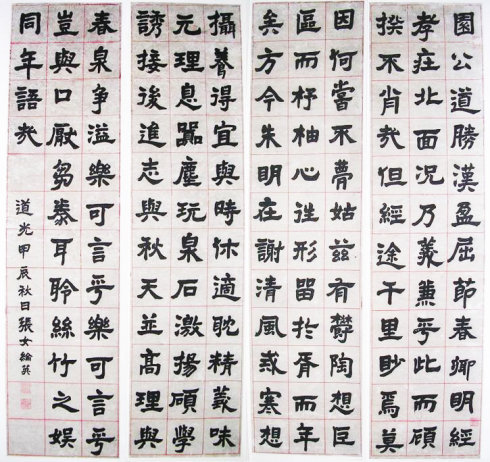 園公道勝漢盈屈節春卿明經
孝在北面況乃義兼乎此而顧
揆不肖哉但經途千里眇焉莫
因何嘗不夢姑茲有鬱陶想巨
區而杼柚心往形留於胥而年
矣方今朱明在謝清風戒寒想
攝養得宜與時休適耽精義味
元理息囂塵玩泉石激揚碩學
誘接後進志與秋天並高理與
春泉爭溢樂可言乎樂可言乎
豈與口厭芻豢耳聆絲竹之娛
同年語哉
道光甲辰秋日張女綸英